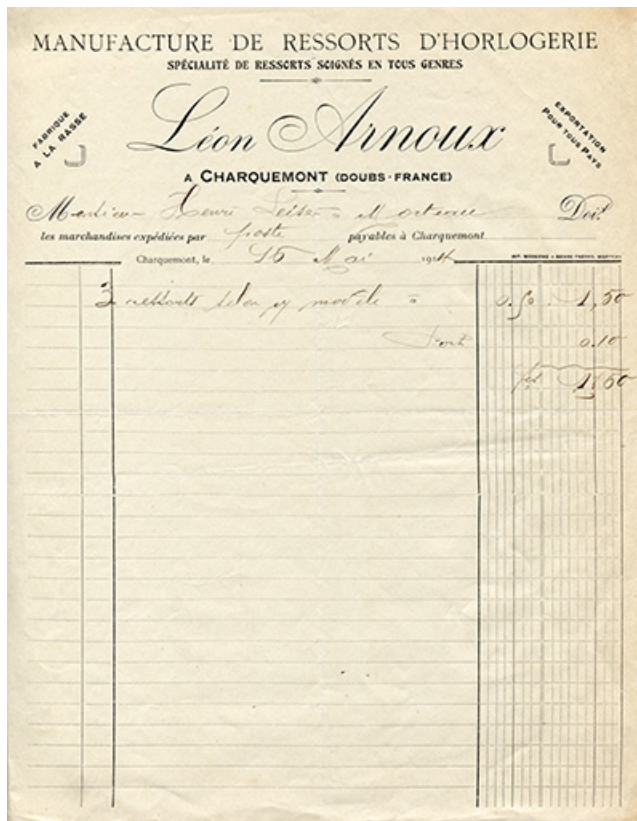 MANUFACTURE DE RESSORTS D'HORLOGERIE
SPÉCIALITÉ DE RESSORTS SOIGNÉS EN TOUS GENRES
FABRIQUE
A LA RASSE
Léon Arnoux
EXPORTATION
POUR TOUS PAYS
A CHARQUEMONT (DOUBS-FRANCE)
Monsieur Henri à Doit
les marchandises expédiées par poste payables à Charquemont
Charquemont, le 15 Mai 1914
3 ressorts selon modèle à 0.50 1,50
Port 0.10
1,60